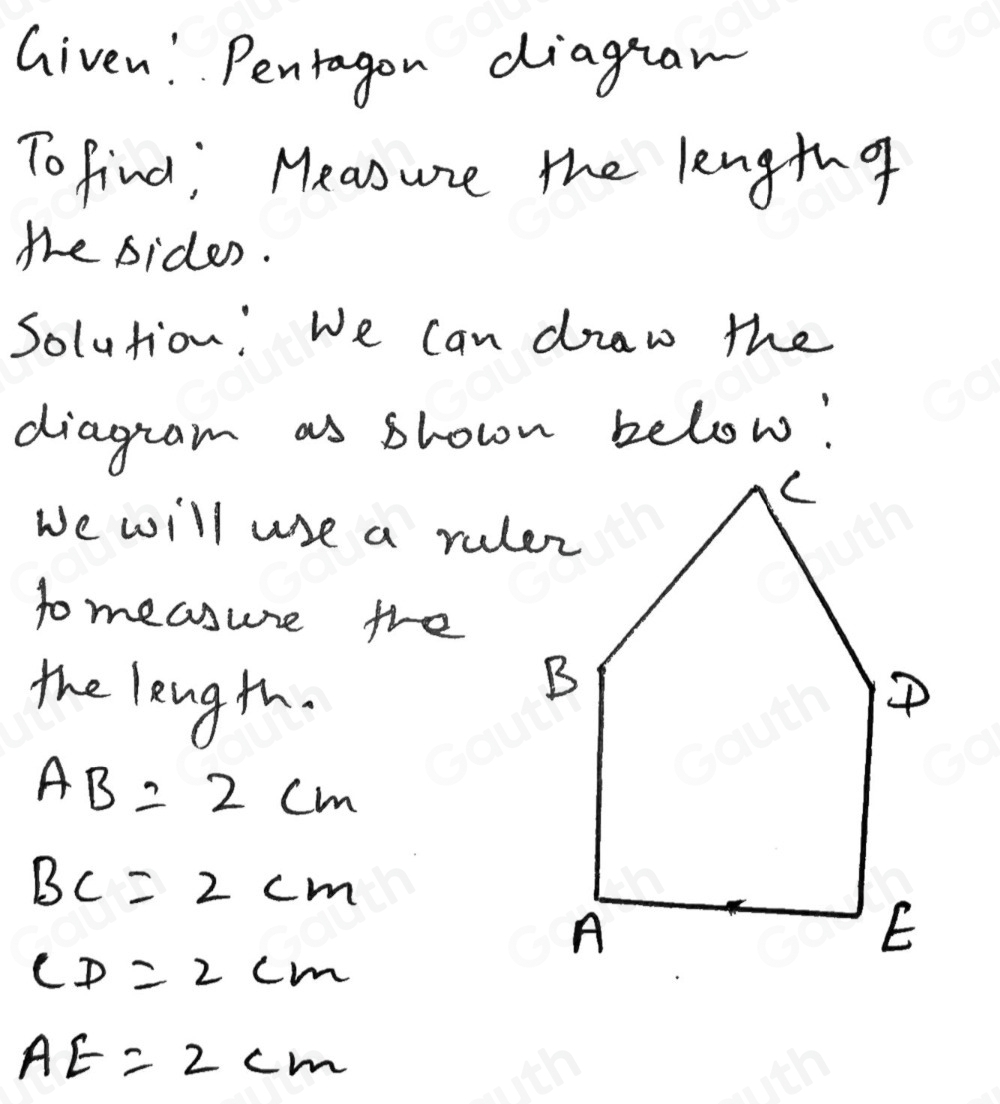 Given: Pentagon diagram
To find: Measure the length of
the sides.
Solution: We can draw the
diagram as shown below:
We will use a ruler
to measure the
the length.
AB = 2 cm
BC = 2 cm
CD = 2 cm
AE = 2 cm
C
B
D
A
E